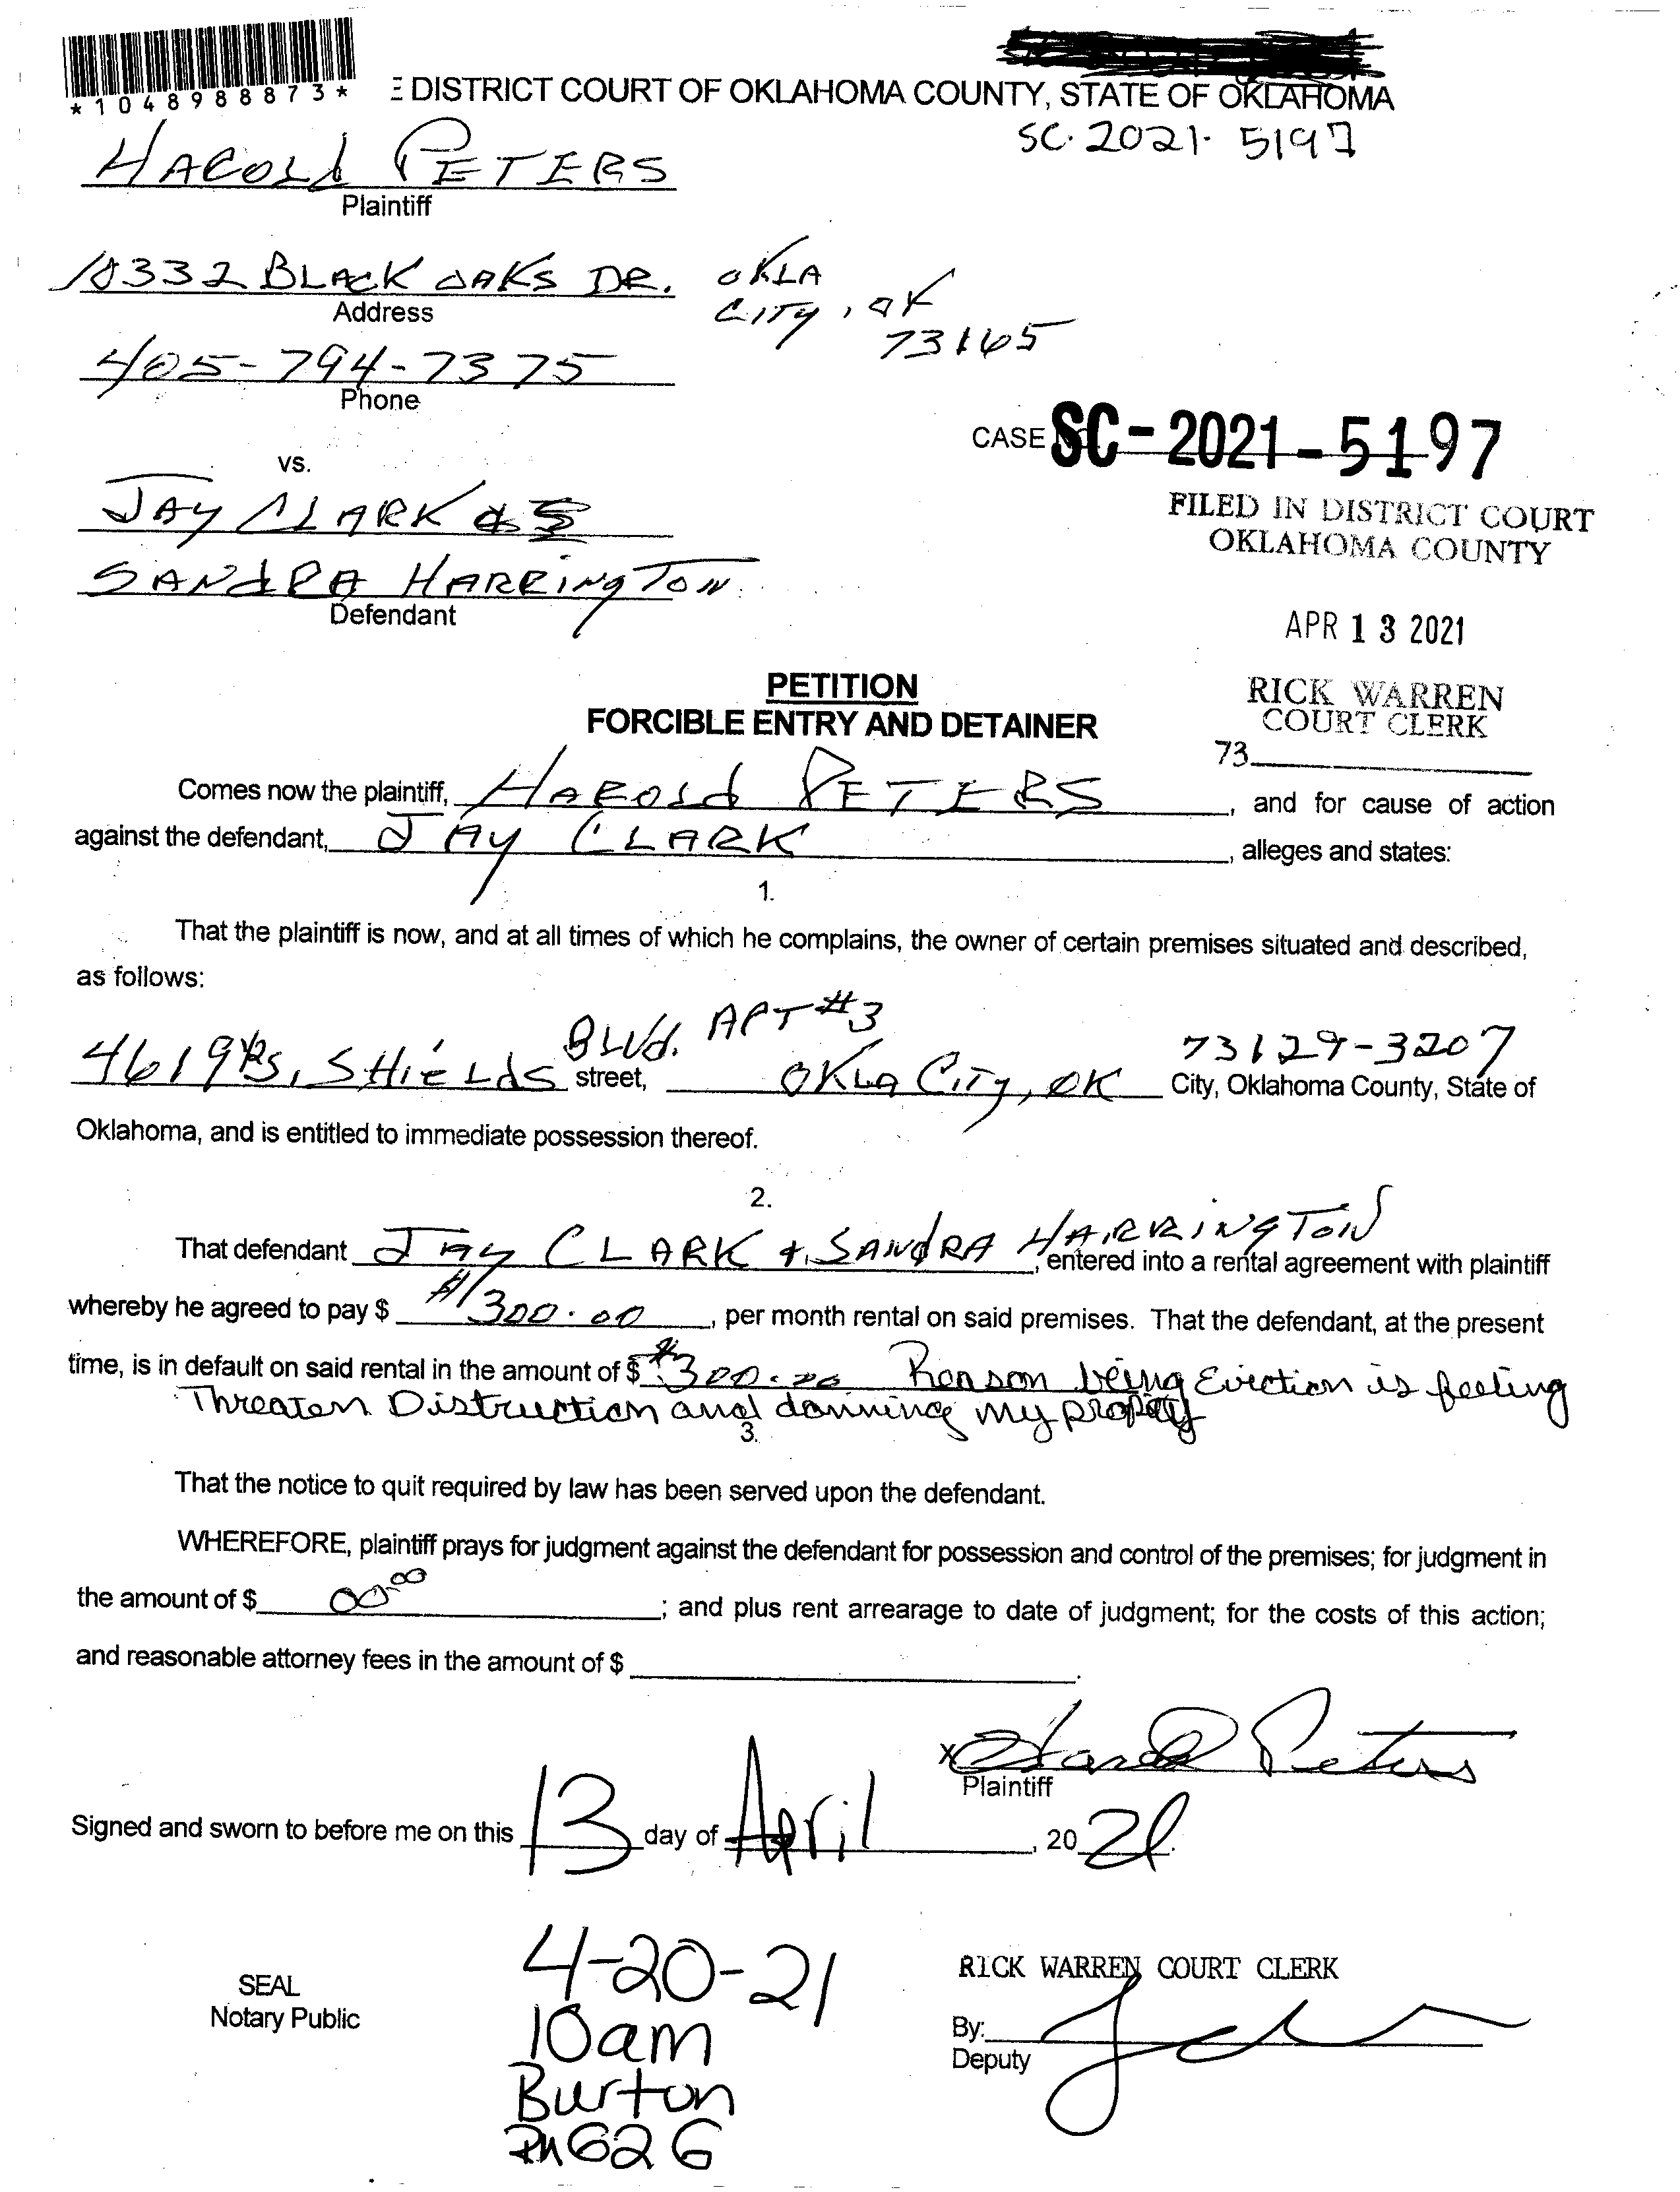 *1048988873*
E DISTRICT COURT OF OKLAHOMA COUNTY, STATE OF OKLAHOMA
SC. 2021. 5197
HAROLD PETERS
Plaintiff
10332 BLACK OAKS DR. OKLA CITY, OK 73165
Address
405-794-7375
Phone
CASE NO. SC-2021-5197
vs.
FILED IN DISTRICT COURT
OKLAHOMA COUNTY
JAY CLARK &
SANDRA HARRINGTON
Defendant
APR 13 2021
PETITION
FORCIBLE ENTRY AND DETAINER
RICK WARREN
COURT CLERK
73
Comes now the plaintiff, HAROLD PETERS, and for cause of action
against the defendant, JAY CLARK, alleges and states:
1.
That the plaintiff is now, and at all times of which he complains, the owner of certain premises situated and described,
as follows:
4619½ S. SHIELDS BLVD. APT #3 street, OKLA CITY, OK 73129-3207 City, Oklahoma County, State of
Oklahoma, and is entitled to immediate possession thereof.
2.
That defendant JAY CLARK + SANDRA HARRINGTON, entered into a rental agreement with plaintiff
whereby he agreed to pay $ $300.00, per month rental on said premises. That the defendant, at the present
time, is in default on said rental in the amount of $ $300.00 Reason being Eviction is feeling
Threaten Distruction and my
3.
That the notice to quit required by law has been served upon the defendant.
WHEREFORE, plaintiff prays for judgment against the defendant for possession and control of the premises; for judgment in
the amount of $ 00.00; and plus rent arrearage to date of judgment; for the costs of this action;
and reasonable attorney fees in the amount of $
x Harold Peters
Plaintiff
Signed and sworn to before me on this 13 day of April, 2021.
SEAL
Notary Public
4-20-21
10am
Burton
Rm 626
RICK WARREN COURT CLERK
By:
Deputy